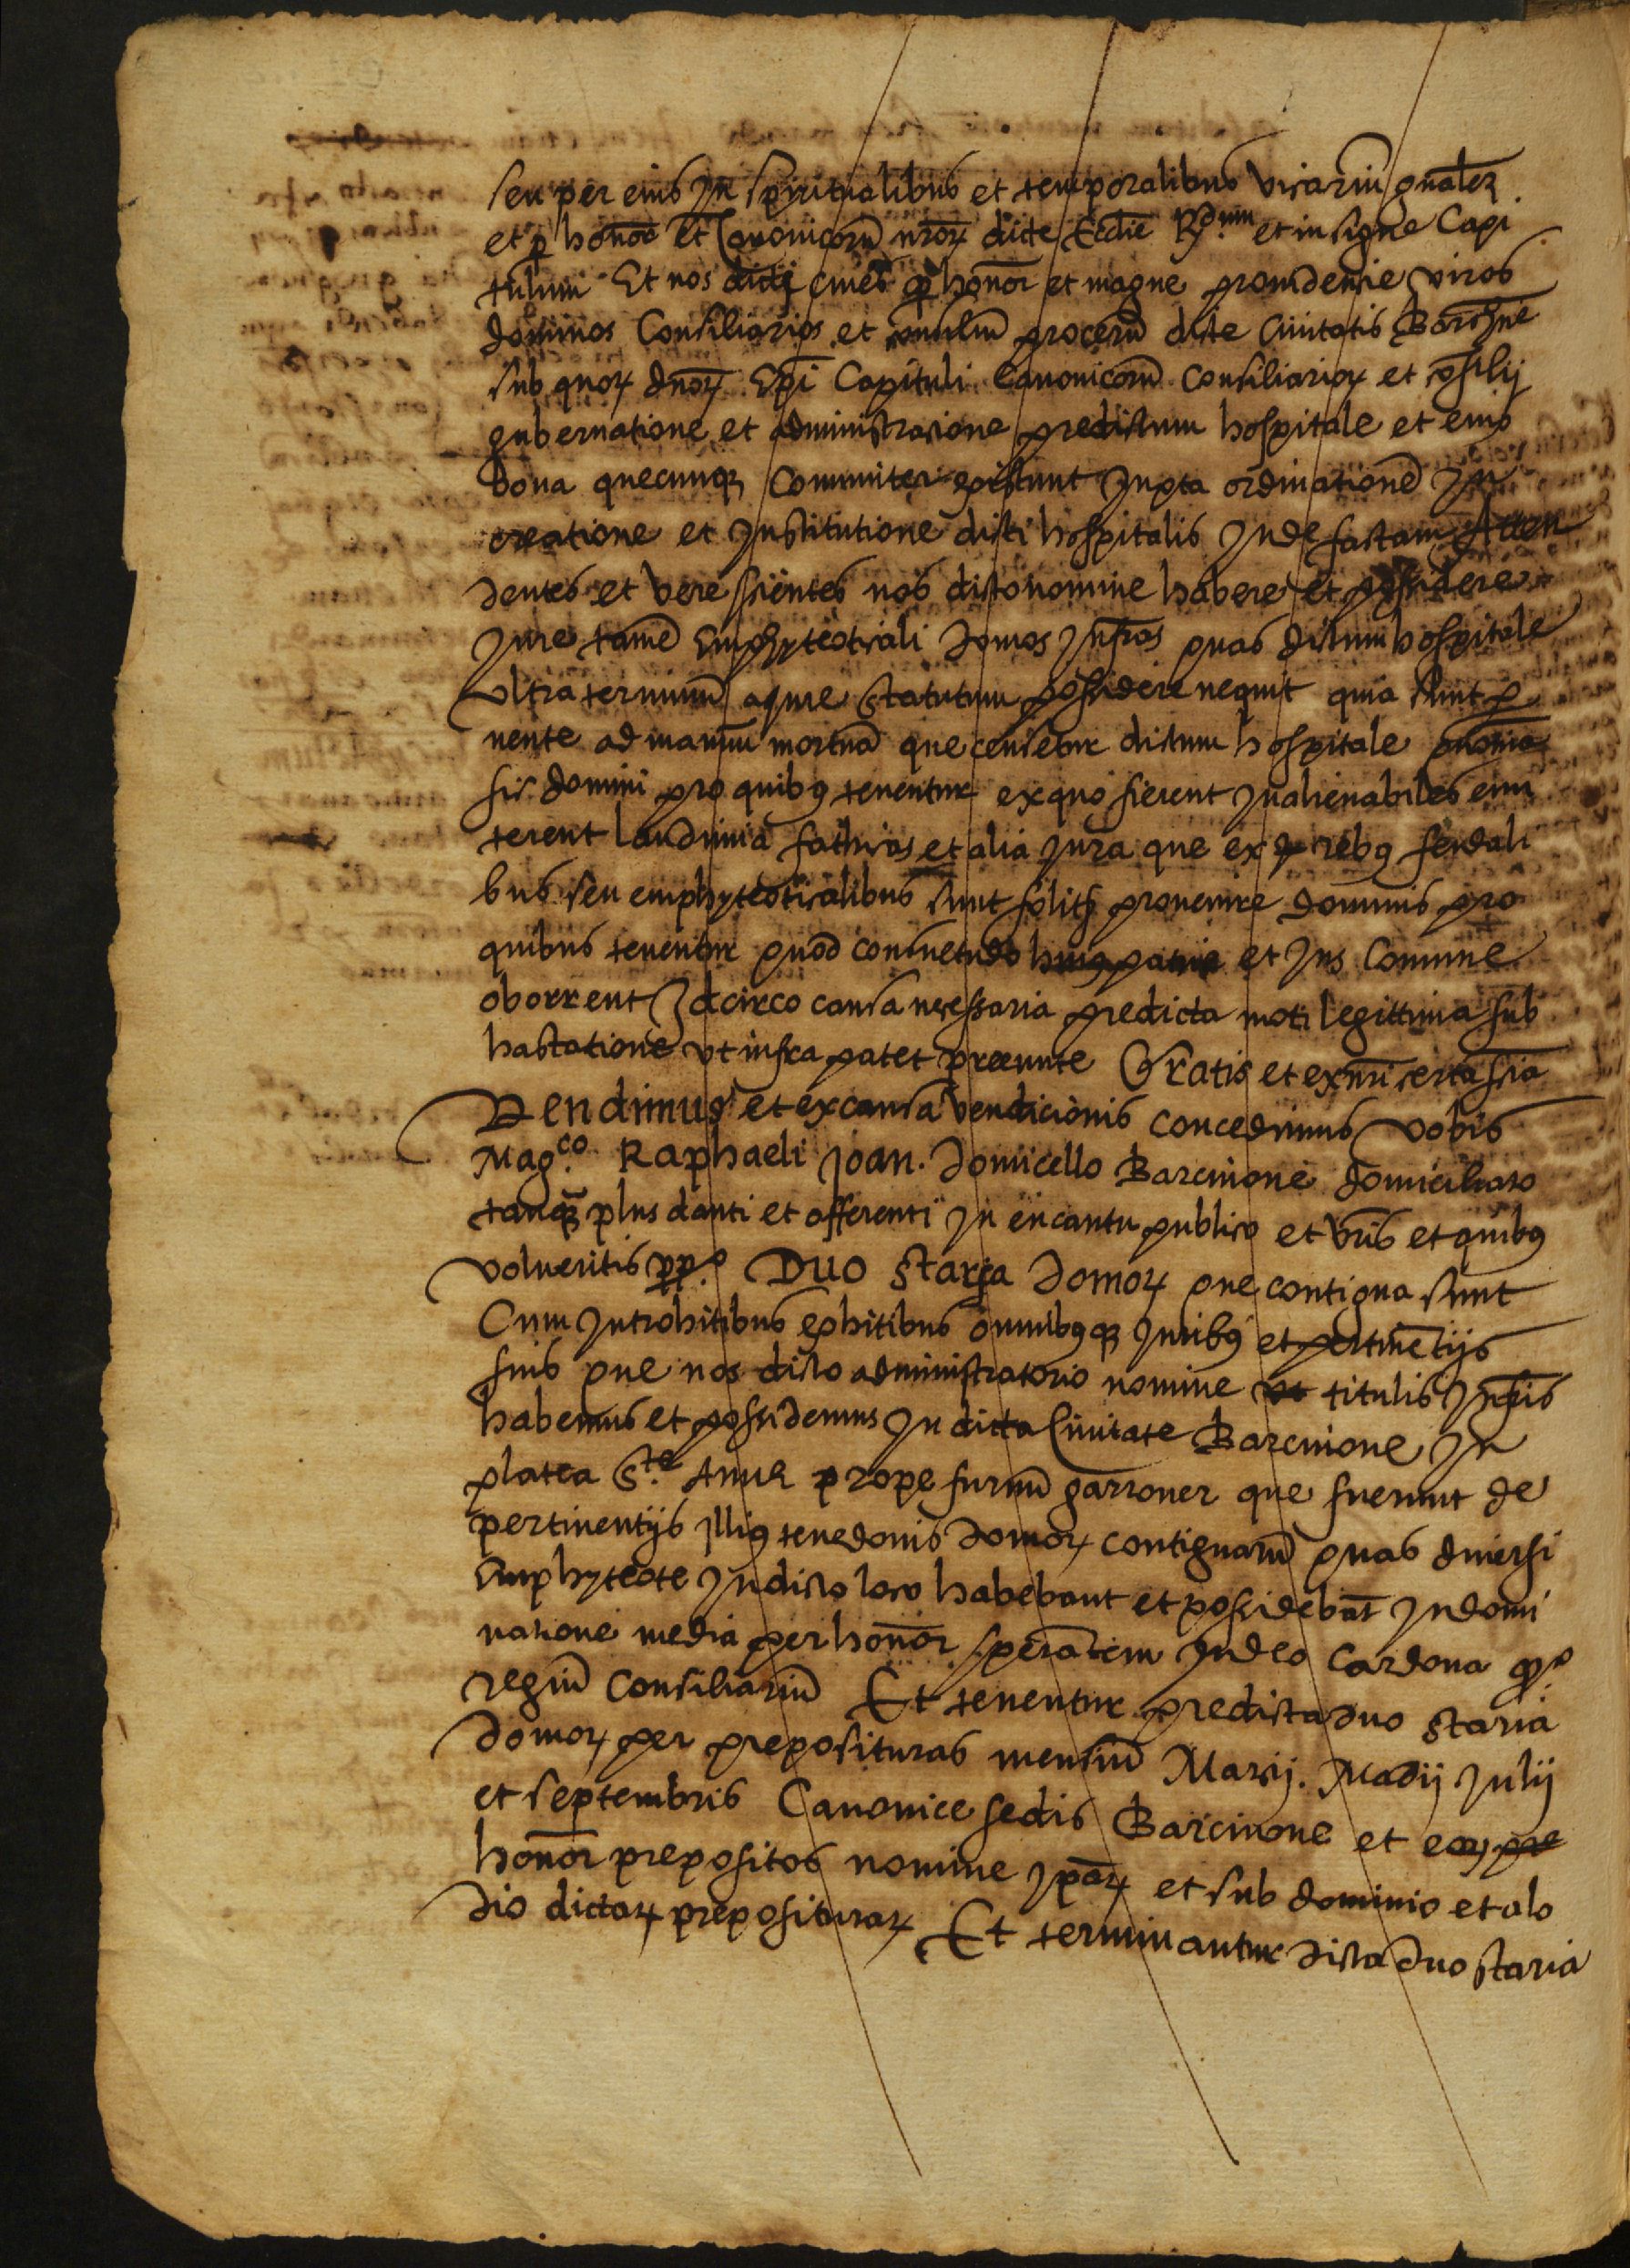 seu per eius Jn spiritualibus et temporalibus vicariũ gñalez
et p honor et Canonicorũ nror dicte Ecclie Rdum et insigne Capi
tulum Et nos dicti ciues p honor et magne prouidencie viros
dominos Consiliarios et consilium procerũ dicte Ciuitatis Barchne
sub quorꝝ dnorꝝ Epi Capituli Canonicorũ Consiliariorꝝ et cosilij
gubernatione et administracione predictum hospitale et eius
bona quecunqꝫ Comuniter existunt Juxta ordinationẽ Jn
creatione et Jnstitutione dicti hospitalis Jnde factam Atten
dentes et vere scientes nos dicto nomine habere et possidere
Jure tamẽ Emphyteoticali domos Jnfras quas dictum hospitale
vltra terminũ a jure statutum possidere nequit quia sunt p
uente ad manum mortuã que censetur dictum hospitale
sic domini pro quibꝯ tenentur ex quo fierent Jnalienabiles
terent laudimia fathicas et alia Jura que ex rebꝯ feudali
bus seu emphyteoticalibus sunt solita prouenire dominis pro
quibus tenentur quod consuetudo huiꝯ patrie et Jus Comune
oborrent Jdcirco causa necessaria predicta moti legittima sub
hastatione vt infra patet preeunte Gratis et ex nri certa scia
Vendimus et ex causa vendicionis concedimus vobis
Magco. Raphaeli Joan. domicello Barcinone domiciliato
tanqꝫ plus danti et offerenti Jn encantu publico et vris et quibꝯ
volueritis ppo. Duo staria domorꝝ que contigua sunt
Cum Jntrohitibus exhitibus omnibꝯqꝫ Juribꝯ et pertinẽtijs
suis que nos dicto administratorio nomine titulis Jnfris
habemus et possidemus Jn dicta Ciuitate Barcinone Jn
platea Ste. Anne prope furnũ garroner que fuerunt de
pertinentijs illiꝯ tenedonis domorꝝ contiguarũ quas diuersi
Emphyteote Jn dicto loco habebant et possidebãt Jn domi
natione media per honor speratem Jndeo Cardona qo
regiũ Consiliariũ Et tenentur predicta duo staria
domorꝝ per preposituras mensiũ Marcij. Madij Julij
et septembris Canonice sedis Barcinone et eorꝝ
honor prepositos nomine Jparꝝ et sub dominio et alo
dio dictarꝝ prepositurarꝝ Et terminantur dicta duo staria